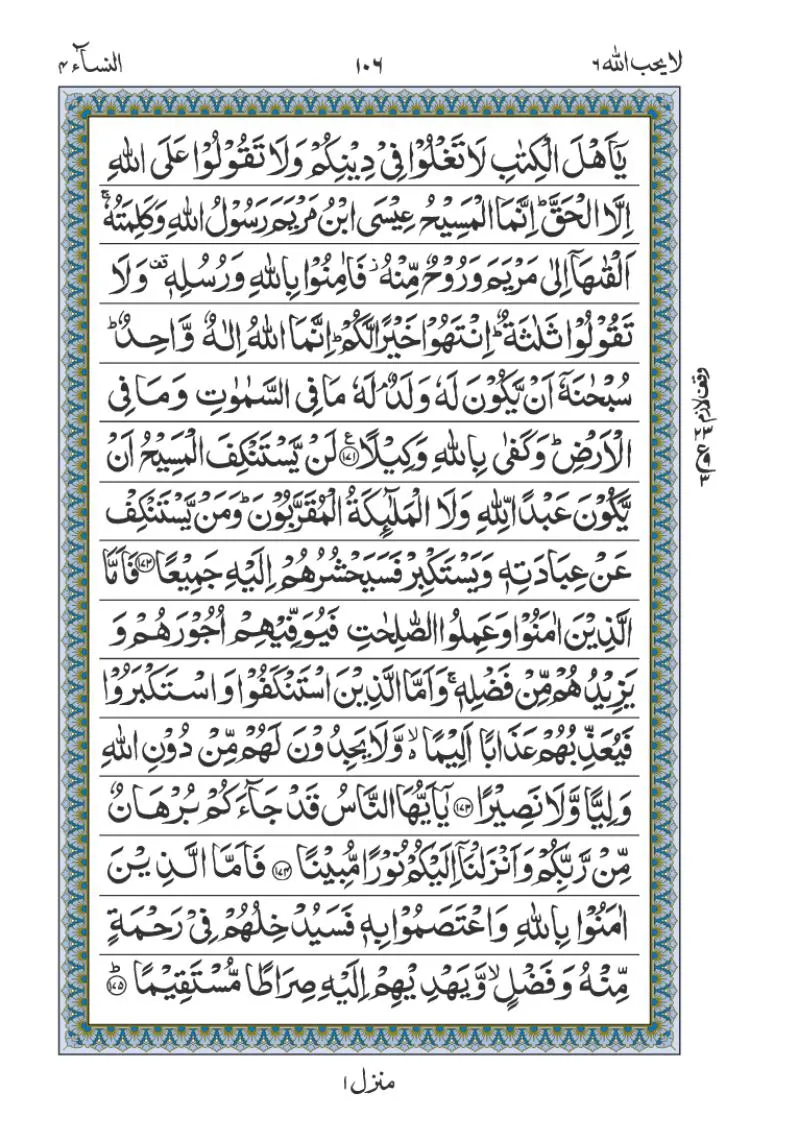 لا یحب اللہ ۶
۱۰۶
النسآء ۴
يٰٓاَهْلَ الْكِتٰبِ لَا تَغْلُوْا فِيْ دِيْنِكُمْ وَلَا تَقُوْلُوْا عَلَى اللّٰهِ
اِلَّا الْحَقَّ ؕ اِنَّمَا الْمَسِيْحُ عِيْسَى ابْنُ مَرْيَمَ رَسُوْلُ اللّٰهِ وَكَلِمَتُهٗ ۚ
اَلْقٰىهَاۤ اِلٰى مَرْيَمَ وَرُوْحٌ مِّنْهُ ؗ فَاٰمِنُوْا بِاللّٰهِ وَرُسُلِهٖ ۫ۚ وَلَا
تَقُوْلُوْا ثَلٰثَةٌ ؕ اِنْتَهُوْا خَيْرًا لَّكُمْ ؕ اِنَّمَا اللّٰهُ اِلٰهٌ وَّاحِدٌ ؕ
سُبْحٰنَهٗۤ اَنْ يَّكُوْنَ لَهٗ وَلَدٌ ۘ لَهٗ مَا فِي السَّمٰوٰتِ وَمَا فِي
الْاَرْضِ ؕ وَكَفٰى بِاللّٰهِ وَكِيْلًا ﴿۱۷۱﴾ ع لَنْ يَّسْتَنْكِفَ الْمَسِيْحُ اَنْ
يَّكُوْنَ عَبْدًا لِّلّٰهِ وَلَا الْمَلٰٓئِكَةُ الْمُقَرَّبُوْنَ ؕ وَمَنْ يَّسْتَنْكِفْ
عَنْ عِبَادَتِهٖ وَيَسْتَكْبِرْ فَسَيَحْشُرُهُمْ اِلَيْهِ جَمِيْعًا ﴿۱۷۲﴾ فَاَمَّا
الَّذِيْنَ اٰمَنُوْا وَعَمِلُوا الصّٰلِحٰتِ فَيُوَفِّيْهِمْ اُجُوْرَهُمْ وَ
يَزِيْدُهُمْ مِّنْ فَضْلِهٖ ۚ وَاَمَّا الَّذِيْنَ اسْتَنْكَفُوْا وَاسْتَكْبَرُوْا
فَيُعَذِّبُهُمْ عَذَابًا اَلِيْمًا ۙ وَّلَا يَجِدُوْنَ لَهُمْ مِّنْ دُوْنِ اللّٰهِ
وَلِيًّا وَّلَا نَصِيْرًا ﴿۱۷۳﴾ يٰٓاَيُّهَا النَّاسُ قَدْ جَآءَكُمْ بُرْهَانٌ
مِّنْ رَّبِّكُمْ وَاَنْزَلْنَاۤ اِلَيْكُمْ نُوْرًا مُّبِيْنًا ﴿۱۷۴﴾ فَاَمَّا الَّذِيْنَ
اٰمَنُوْا بِاللّٰهِ وَاعْتَصَمُوْا بِهٖ فَسَيُدْخِلُهُمْ فِيْ رَحْمَةٍ
مِّنْهُ وَفَضْلٍ ۙ وَّيَهْدِيْهِمْ اِلَيْهِ صِرَاطًا مُّسْتَقِيْمًا ؕ ﴿۱۷۵﴾
وقف لازم
منزل ۱